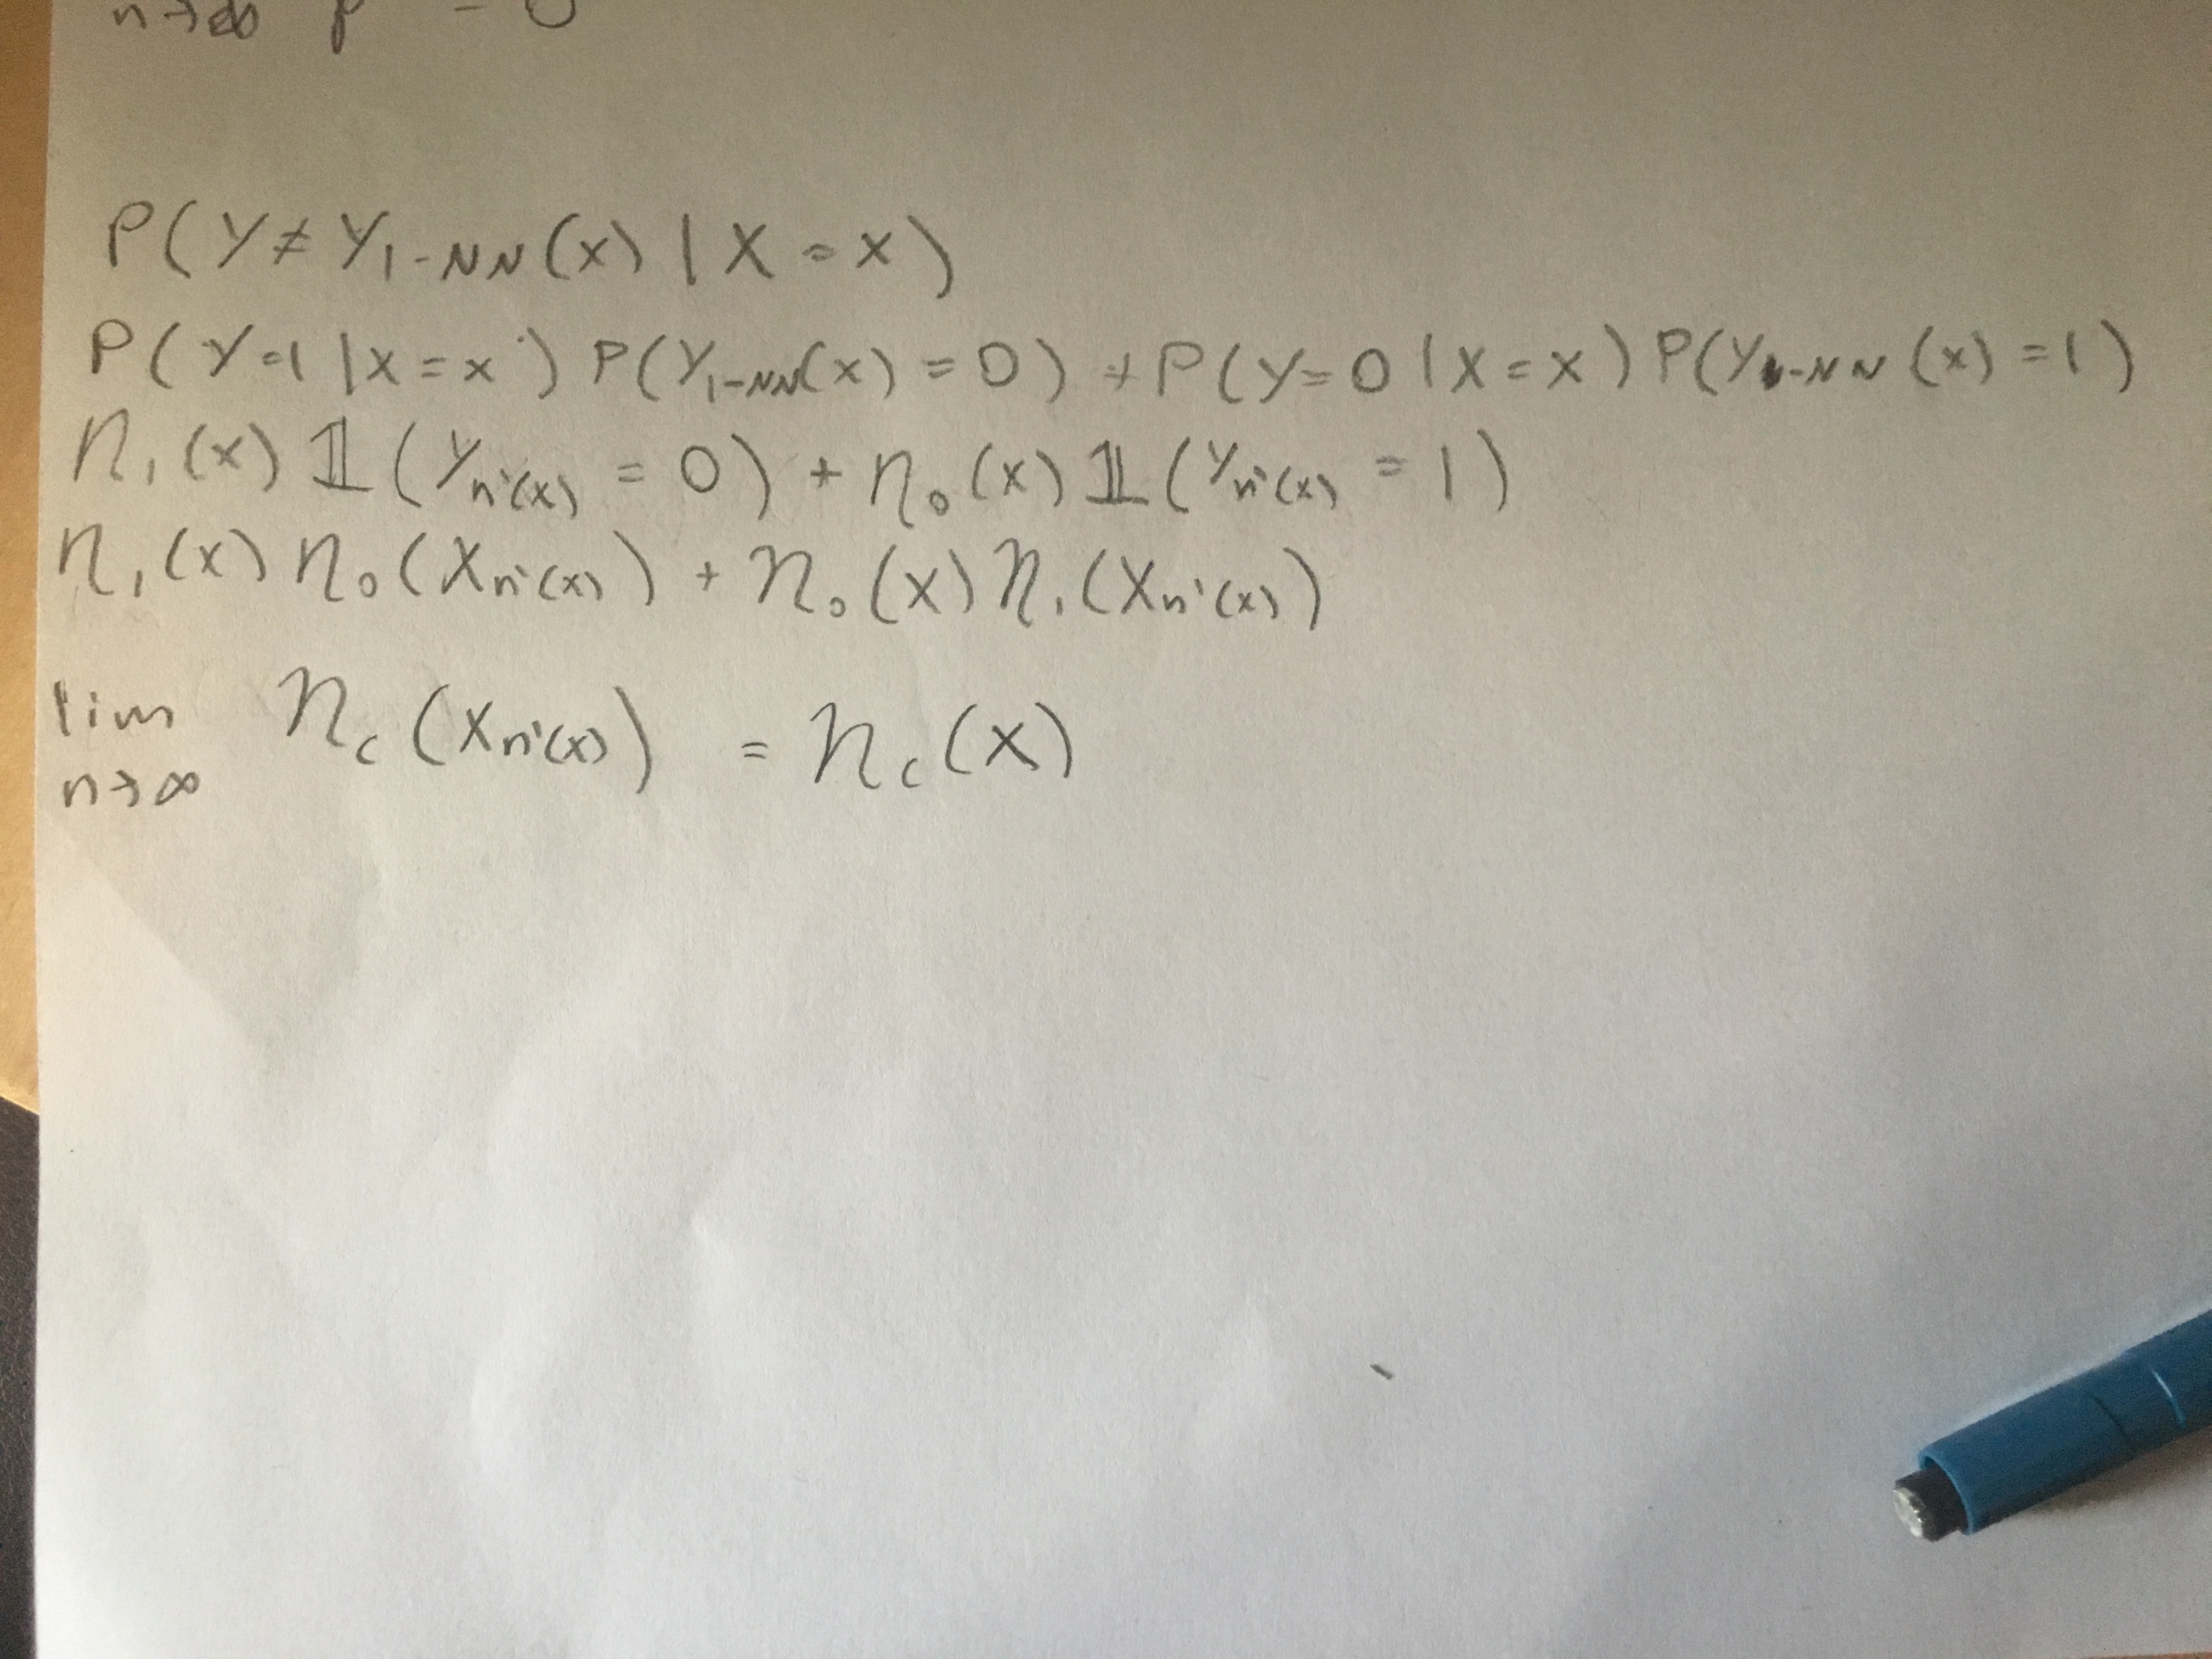 n→∞
P(Y≠Y₁₋NN(x)|X=x)
P(Y=1|X=x)P(Y₁₋NN(x)=0)+P(Y=0|X=x)P(Y₁₋NN(x)=1)
η₁(x)𝟙(Yn'(x)=0)+η₀(x)𝟙(Yn'(x)=1)
η₁(x)η₀(Xn'(x))+η₀(x)η₁(Xn'(x))
lim ηc(Xn'(x)) = ηc(x)
n→∞